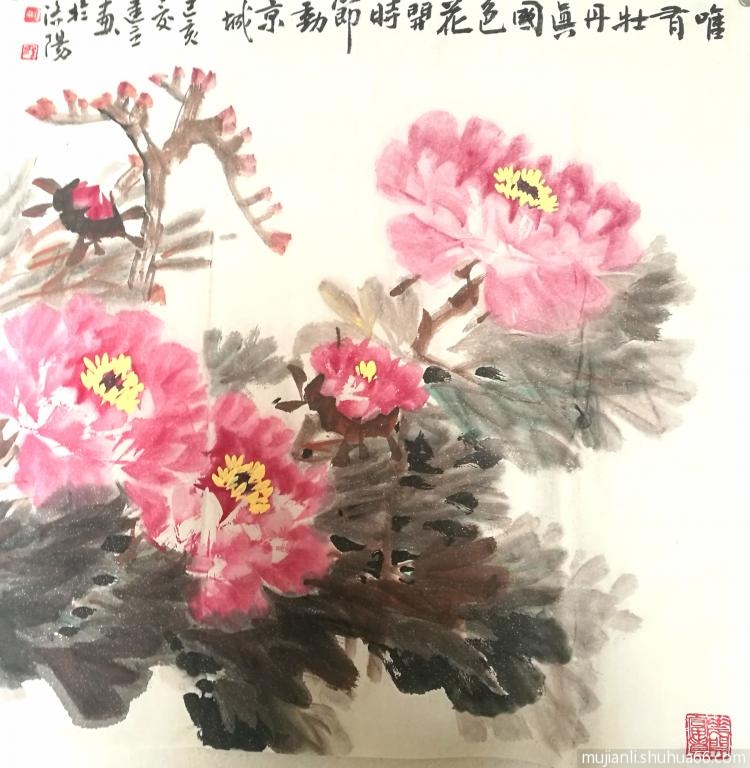 唯有牡丹真國色花開時節動京城
己亥
夏
建立
畫
於
洛陽
mujianli.shuhua66.com